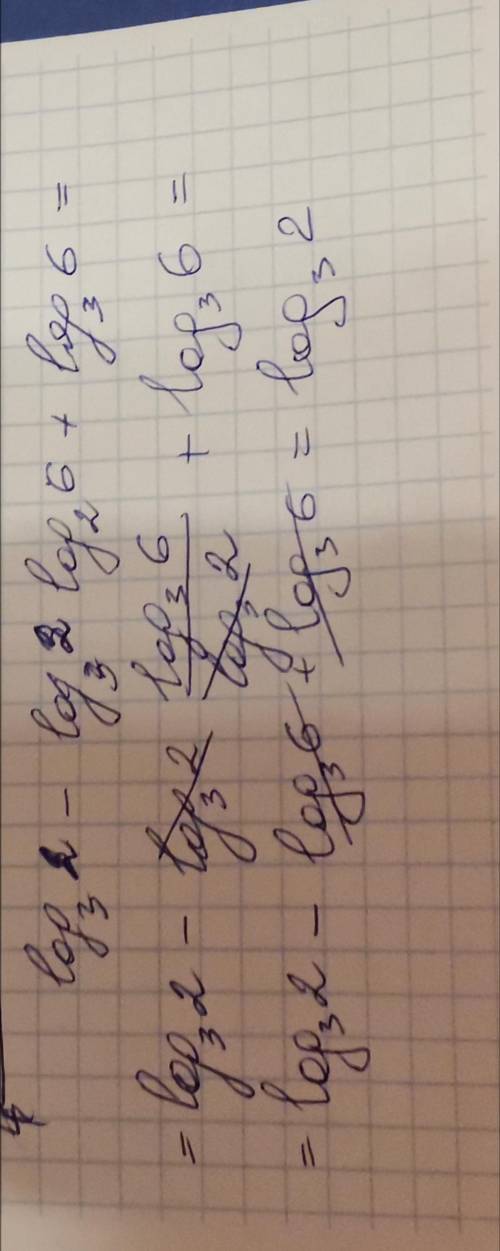 log₃2 - log₃2 log₂6 + log₃6 =
= log₃2 - log₃2 log₃6/log₃2 + log₃6 =
= log₃2 - log₃6 + log₃6 = log₃2